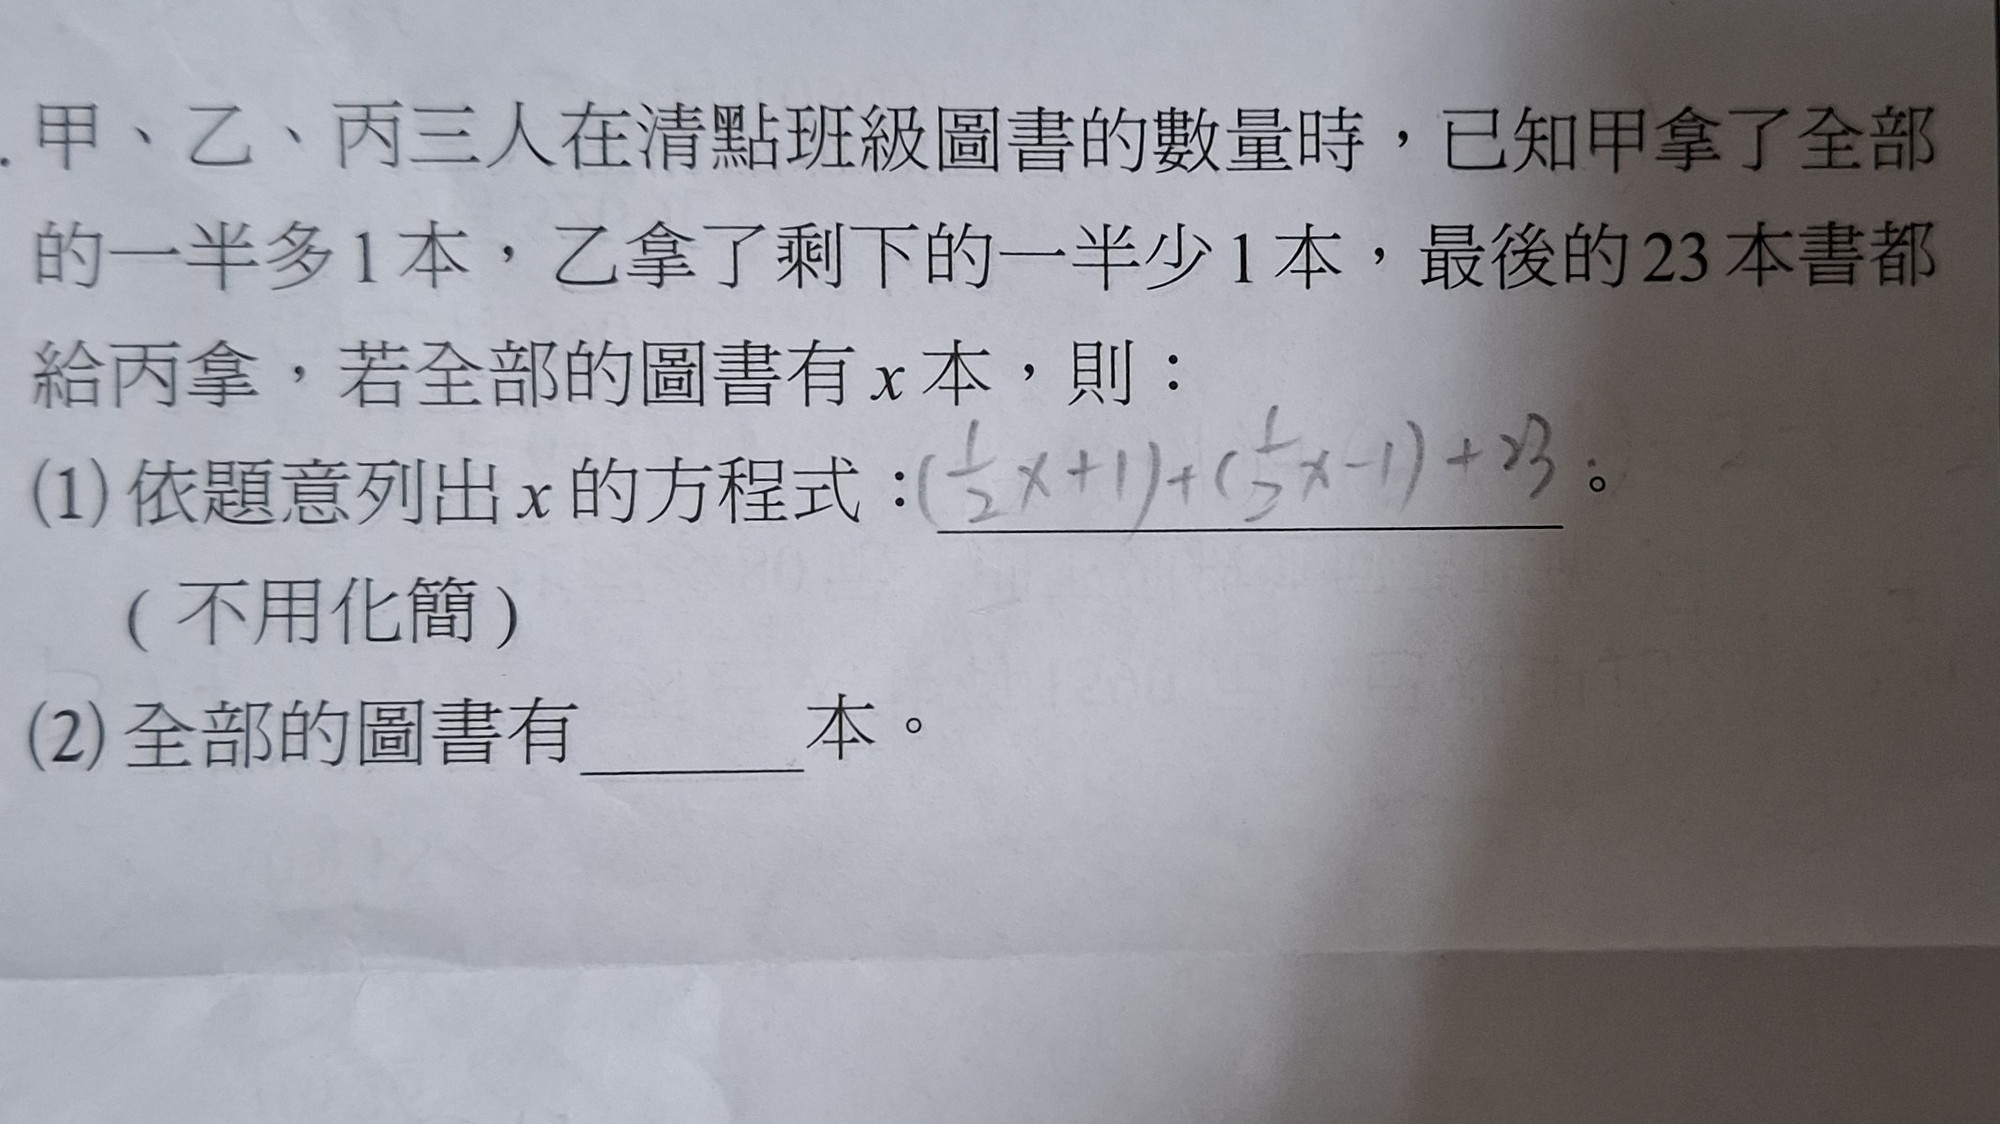 .甲、乙、丙三人在清點班級圖書的數量時，已知甲拿了全部
的一半多1本，乙拿了剩下的一半少1本，最後的23本書都
給丙拿，若全部的圖書有x本，則：
(1)依題意列出x的方程式：(1/2x+1)+(1/2x-1)+23。
(不用化簡)
(2)全部的圖書有______本。